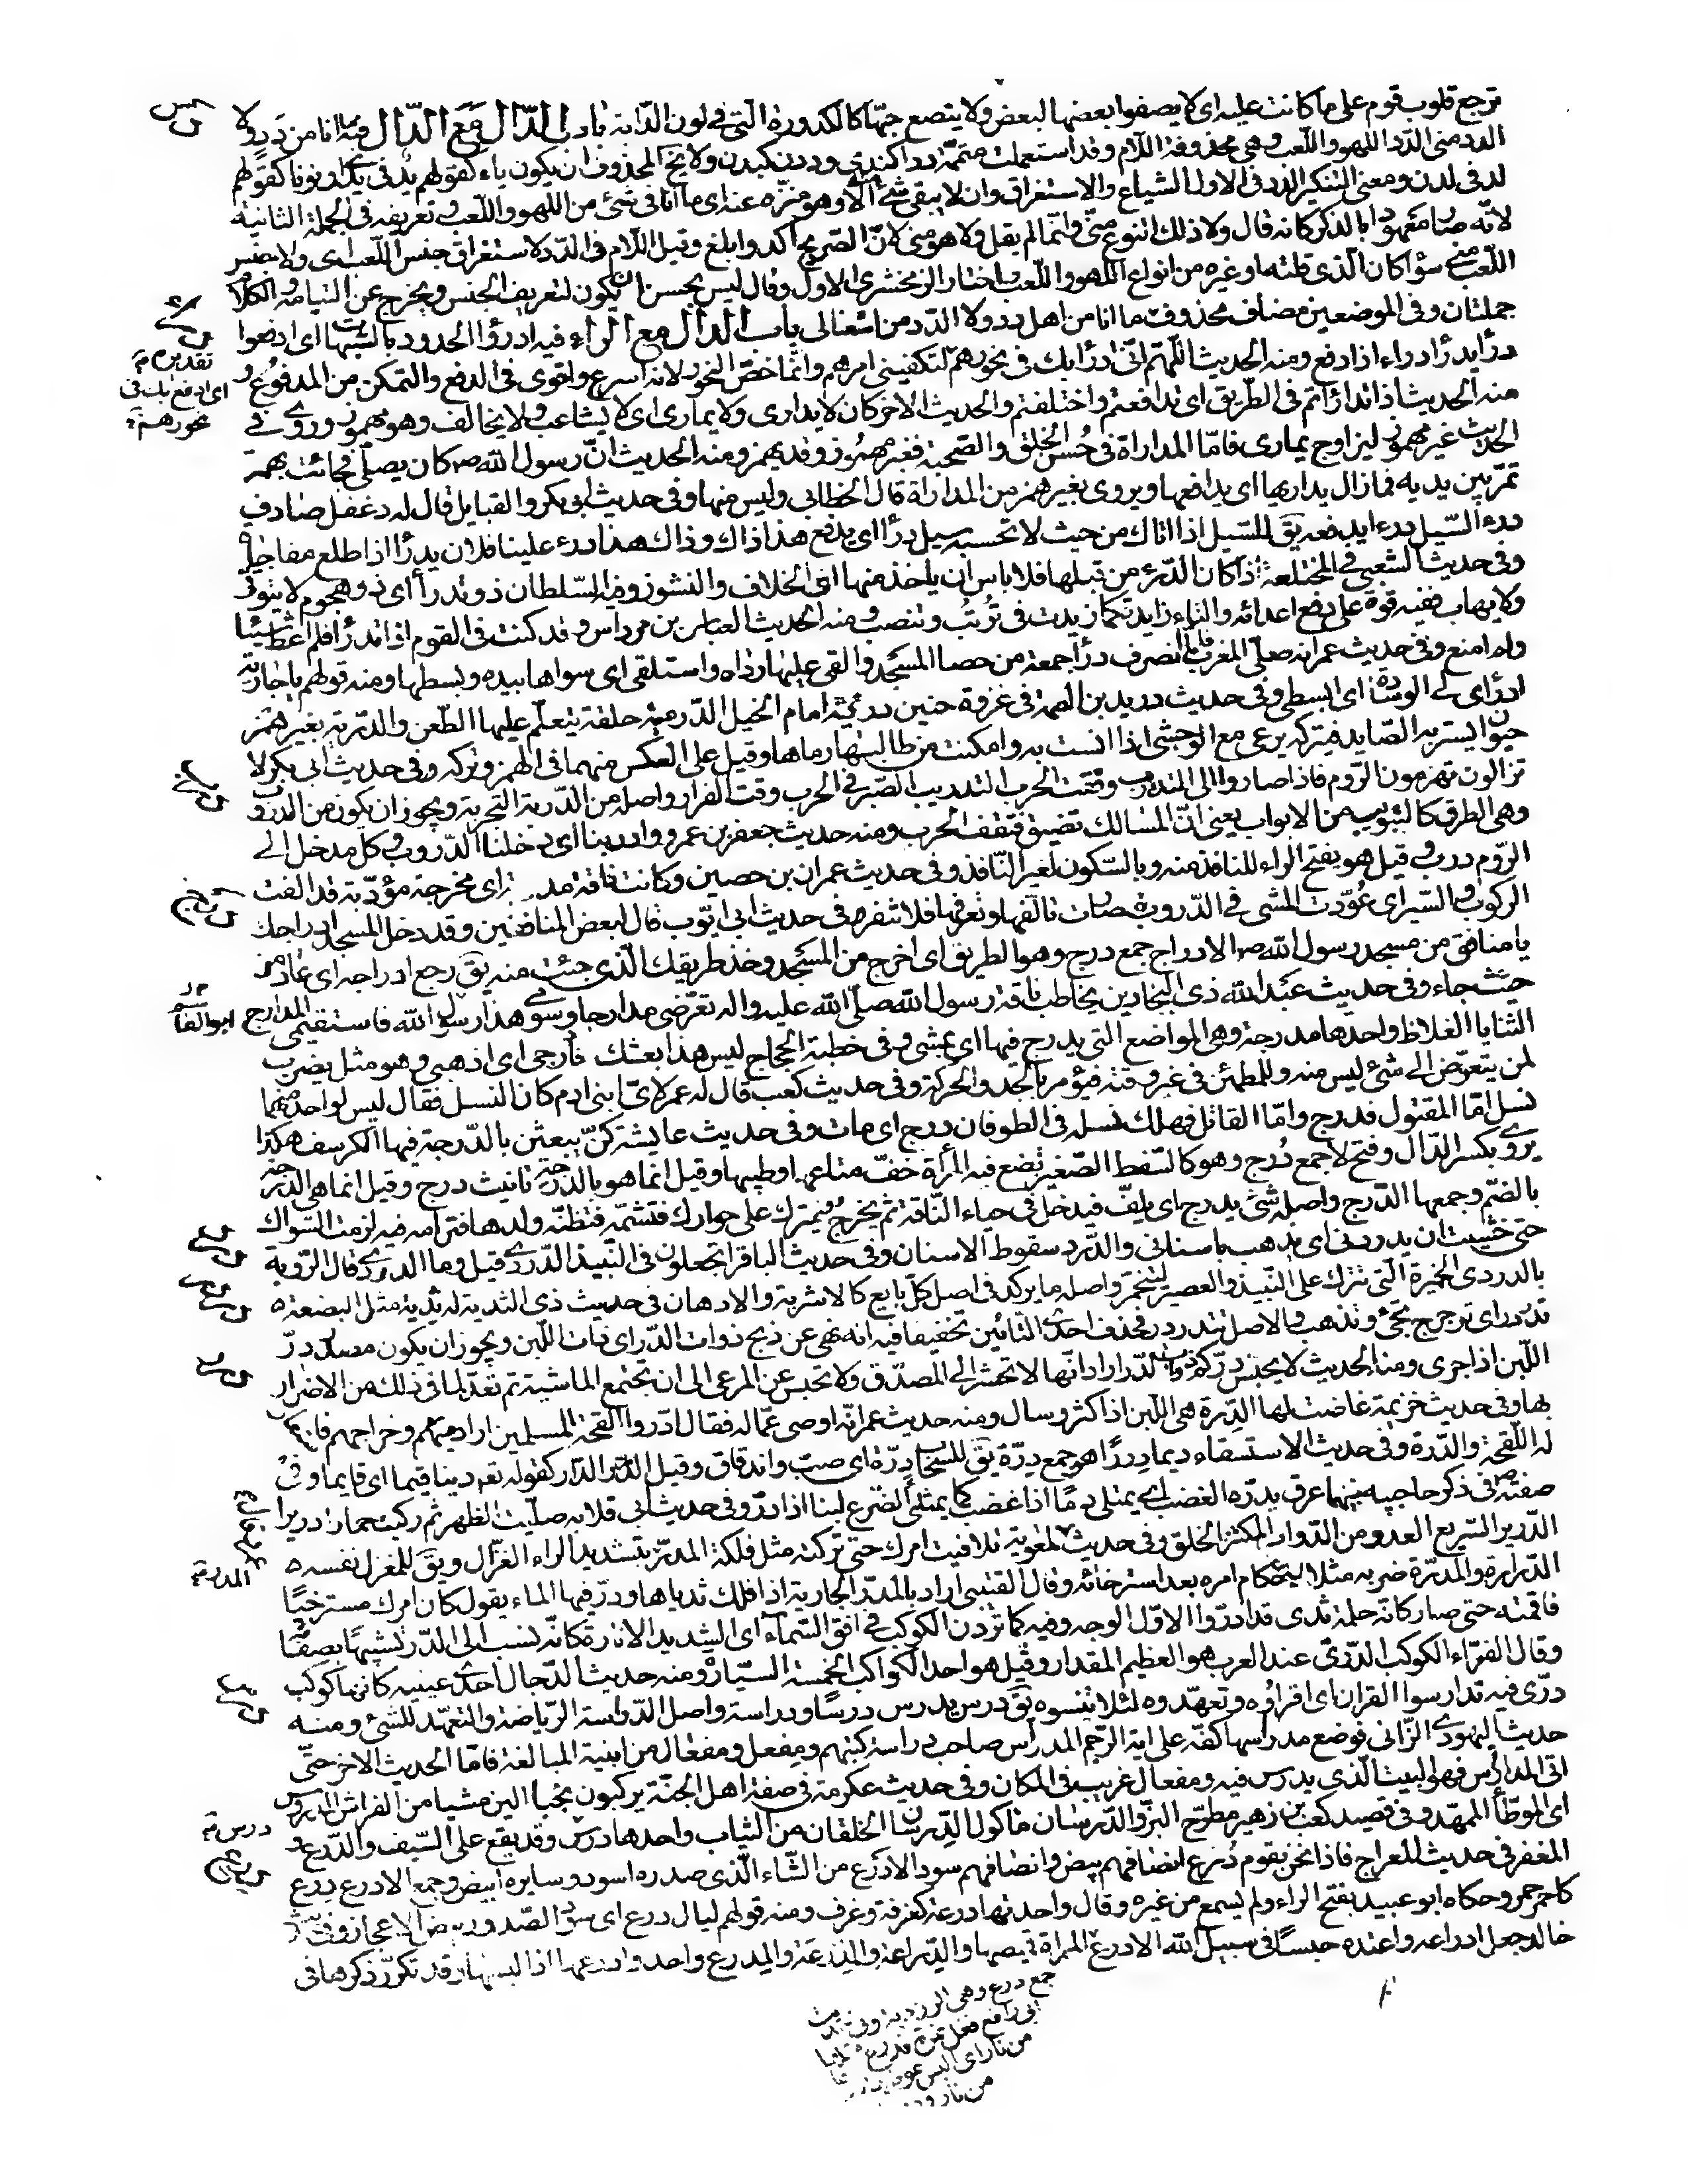 ترجع قلوب قوم على ما كانت عليه اى لا يصفوا بعضها لبعض ولا ينصع حبّها كالكدورة الّتى فى لون الدّابة باب الدّال مع الدّال فيه ما انا من دد ولا
الدد منى الدّد اللهو واللّعب وهى محذوفة اللّام وقد استعملت متمّمة ددا كندى وددن كبدن ولا يخ المحذوف ان يكون ياء كقولهم يد فى يدى او نونا كقولهم
لد فى لدن ومعنى التنكير الدد فى الاول الشياع والاستغراق وان لا يبقى شئ الّا وهو منزّه عنه اى ما انا فى شئ من اللهو واللّعب وتعريفه فى الجملة الثانية
لانّه صار معهودا بالذكر كانه قال ولا ذلك النوع منّى وانّما لم يقل ولا هو منى لانّ الصّريح آكد وابلغ وقيل اللّام فى الدّد لاستغراق جنس اللّعب اى ولا جنس
اللّعب منى سؤا كان الّذى قلته او غيره من انواع اللهو واللّعب واختار الزمخشرى الاول وقال ليس يحسن ان يكون لتعريف الجنس ويخرج عن التيامه والكلام
جملتان وفى الموضعين مضاف محذوف ما انا من اهل دد ولا الدّد من اشغالى باب الدال مع الراء فيه ادرؤا الحدود بالشبهات اى ادفعوا
درأ يدرأ دراء اذا دفع ومنه الحديث اللّهمّ انّى ادرأ بك فى نحورهم لتكفينى امرهم وانّما خصّ النحور لانه اسرع واقوى فى الدفع والتمكن من المدفوع و
منه الحديث اذا تدارأتم فى الطريق اى تدافعتم واختلفتم والحديث الاخر كان لا يدارى ولا يمارى اى لا يشاغب ولا يخالف وهو مهموز وروى فى
الحديث غير مهموز ليزاوج يمارى فامّا المداراة فى حُسن الخلق والصّحبة فغير مهموز وقد يهمز ومنه الحديث انّ رسول الله ص كان يصلّى فجائت بهمة
تمرّ بين يديه فما زال يداريها اى يدافعها ويروى بغير همز من المداراة قال الخطابى وليس منها وفى حديث ابو بكر والقبايل قال له دغفل صادف
درء السّيل درءا يدفعه يق للسّيل اذا اتاك من حيث لا تحتسبه سيل درأ اى يدفع هذا ذاك وذاك هذا ودرء علينا فلان يدرأ اذا طلع مفاجأة
وفى حديث الشعبى فى المختلعة اذا كان الدّرء من قبلها فلا باس ان ياخذ منها اى الخلاف والنشوز وفيه السّلطان ذو تدرأ اى ذو هجوم لا يتوقى
ولا يهاب ففيه قوة على دفع اعدائه والتاء زايدة كما زيدت فى تُرتُب وتنضب ومنه الحديث العباس بن مرداس وقد كنت فى القوم اذا تدرأ فلم اعط شيئا
ولم امنع وفى حديث عمر انه صلّى المغرب فلما انصرف درأ جمعة من حصا المسجد والقى عليها رداه واستلقى اى سواها بيده وبسطها ومنه قولهم يا جارية
ادرأى لى الوسادة اى ابسطى وفى حديث دريد بن الصمة فى غزوة حنين دريئة امام الخيل الدّريئة حلقة يتعلّم عليها الطّعن والدّرية بغير همز
حيوان يستر به الصّايد فيتركه يرعى مع الوحش اذا انست به وامكنت من طالبها رماها وقيل على العكس منهما فى الهمز وتركه وفى حديث ابى بكر لا
تزالون تهزمون الرّوم فاذا صاروا الى التدريب وقفت الحرب التدريب الصّبر فى الحرب وقت الفرار واصله من الدّربة التجربة ويجوز ان يكون من الدروب
وهى الطرق كالتبويب من الابواب يعنى انّ المسالك تضيق فتقف الحرب ومنه حديث جعفر بن عمرو وادربنا اى دخلنا الدّروب وكل مدخل الى
الرّوم درب وقيل هو بفتح الراء للنافذ منه وبالسّكون لغير النّافذ وفى حديث عمران بن حصين وكانت ناقة مدربة اى مخرجة مؤدّبة قد الفت
الركوب والسّير اى عُوّدت المشى فى الدّروب فصارت تالفها وتعرفها فلا تنفر فى حديث ابى ايّوب قال لبعض المنافقين وقد دخل المسجد ادراجك
يا منافق من مسجد رسول الله ص الادراج جمع درج وهو الطريق اى اخرج من المسجد وخذ طريقك الّذى جئت منه يق رجع ادراجه اى عاد من
حيث جاء وفى حديث عبد الله ذى البجادين يخاطب ناقة رسول الله صلّى الله عليه واله تعرّضى مدارجا وسومى هذا رسول الله فاستقيمى المدارج
الثنايا الغلاظ واحدها مدرجة وهى المواضع التى يدرج فيها اى يمشى وفى خطبة الحجاج ليس هذا بعشك فادرجى اى اذهبى وهو مثل يضرب
لمن يتعرّض الى شئ ليس منه وللمطمئن فى غير وقته فيؤمر بالجد والحركة وفى حديث كعب قال له عمر لاىّ ابنى ادم كان النسل فقال ليس لواحد منهما
نسل امّا المقتول فدرج وامّا القاتل فهلك نسله فى الطوفان درج اى مات وفى حديث عايشة كنّ يبعثن بالدّرجة فيها الكرسف هكذا
يروى بكسر الدّال وفتح لا جمع دُرج وهو كالسّفط الصّغير تضع فيه المرأة خفّ متاعها وطيبها وقيل انما هو بالدرجة تانيث درج وقيل انما هى الدّرجة
بالضمّ وجمعها الدّرج واصله شئ يدرج اى يلفّ فيدخل فى حياء النّاقة ثم يخرج ويترك على حوارك فتشمّه فتظنّه ولدها فترامه فيه لزمت السّواك
حتى خشيت ان يدردنى اى يذهب باسنانى والدّرد سقوط الاسنان وفى حديث الباقر اتجعلون فى النّبيذ الدّردى قيل وما الدردى قال الرّوبة
بالدردى الخميرة الّتى تترك على النّبيذ والعصير ليتخمّر واصله ما يركد فى اصل كلّ مايع كالاشربة والادهان فى حديث ذى الثدية له ثدية مثل البضعة
تدردر اى ترجرج تجئ وتذهب والاصل تتدردر فحذف احدى التائين تخفيفا فيه انه نهى عن ذبح ذوات الدّر اى ذات اللّبن ويجوز ان يكون مصدر درّ
اللّبن اذا جرى ومنه الحديث لا يحبس درّكم ذوات الدّر اراد انّها لا تحشر الى المصدّق ولا تحبس عن المرعى الى ان تجتمع الماشية ثم تعدّ لما فى ذلك من الاضرار
بها وفى حديث خزيمة غاضت لها الدِّرة هى اللّبن اذا كثر وسال ومنه حديث عمر انّه اوصى عمّاله فقال ادّروا لقحة المسلمين اراد فيئهم وخراجهم فاستعار
له اللّقحة والدّرة وفى حديث الاستسقاء ديما دِررًا هو جمع دِرّة يق للسّحاب دِرّة اى صبّ واندفاق وقيل الدّرر الدّار كقوله تع دينا قيما اى قايما وفى
صفته ص فى ذكر حاجبيه بينهما عرق يدرّه الغضب اى يمتلى دمًا اذا غضب كما يمتلئ الضّرع لبنا اذا درّ وفى حديث ابى قلابه صلّيت الظهر ثم ركبت حمارا دريرا
الدّرير السّريع العدو من الدّواب المكتنز الخلق وفى حديث لمعوية تلافيت امرك حتى تركته مثل فلكة المدرّ بتشديد الراء الغزّال ويق للمغزل نفسه
الدّرارة والمدرّة ضربه مثلا لاحكام امره بعد استرخائه وقال القتيبى اراد بالمدرّ الجارية اذا فلك ثدياها ودرّ فيهما الماء يقول كان امرك مسترخيًا
فاقمته حتى صار كانّه حلمة ثدى قد ادرّ والاوّل الوجه وفيه كما ترون الكوكب فى افق السّماء اى الشديد الانارة كانّه نسب الى الدّر تشبيهًا بصفائه
وقال الفرّاء الكوكب الدّرّىّ عند العرب هو العظيم المقدار وقيل هو احد الكواكب الخمسة السيّارة ومنه حديث الدّجال احدى عينيه كانّها كوكب
درّى فيه تدارسوا القران اى اقراؤه وتعهّدوه لئلّا تنسوه يق درس يدرس درسًا ودراسة واصل الدّراسة الرّياضة والتعهّد للشئ ومنه
حديث اليهودى الزّانى فوضع مدراسها كفّه على اية الرّجم المدراس صاحب دراسة كتبهم ومفعل ومفعال من ابنية المبالغة فامّا الحديث الاخر حتّى
اتى المدارس فهو البيت الّذى يدرس فيه ومفعال غريب فى المكان وفى حديث عكرمة فى صفة اهل الجنّة يركبون نجبا الين مشيا من الفراش المدروس
اى الموطّأ الممهّد وفى قصيد كعب بن زهير مطرّح البزّ والدّرسان ماكول الدِّرسان الخلقان من الثياب واحدها درس وقد يقع على السّيف والدّرع و
المغفر فى حديث المعراج فاذا نحن بقوم دُرع انصافهم بيض وانصافهم سود الادرع من الشّاء الّذى صدره اسود وسايره ابيض وجمع الادرع درع
كاحمر حمر وحكاه ابو عبيد بفتح الراء ولم يسمع من غيره وقال واحدتها درعة كغرفة وغرف ومنه قولهم ليال درع اى سود الصّدور بيض الاعجاز وفى
خالد جعل ادراعه واعتده حبسًا فى سبيل الله الادرع المراة قميصها والدّراعة والمدرعة والمدرع واحد وادرعها اذا لبسها وقد تكرّر ذكرها فى
تقديره
اى ادفع بك فى
نحورهم
ابو القاسم
المدرة
درس
جمع درع وهى الزردية وفى حديث
ابى رافع فغلّ نمرة فدرع مثلها
من نار اى البس عوضها
من نار